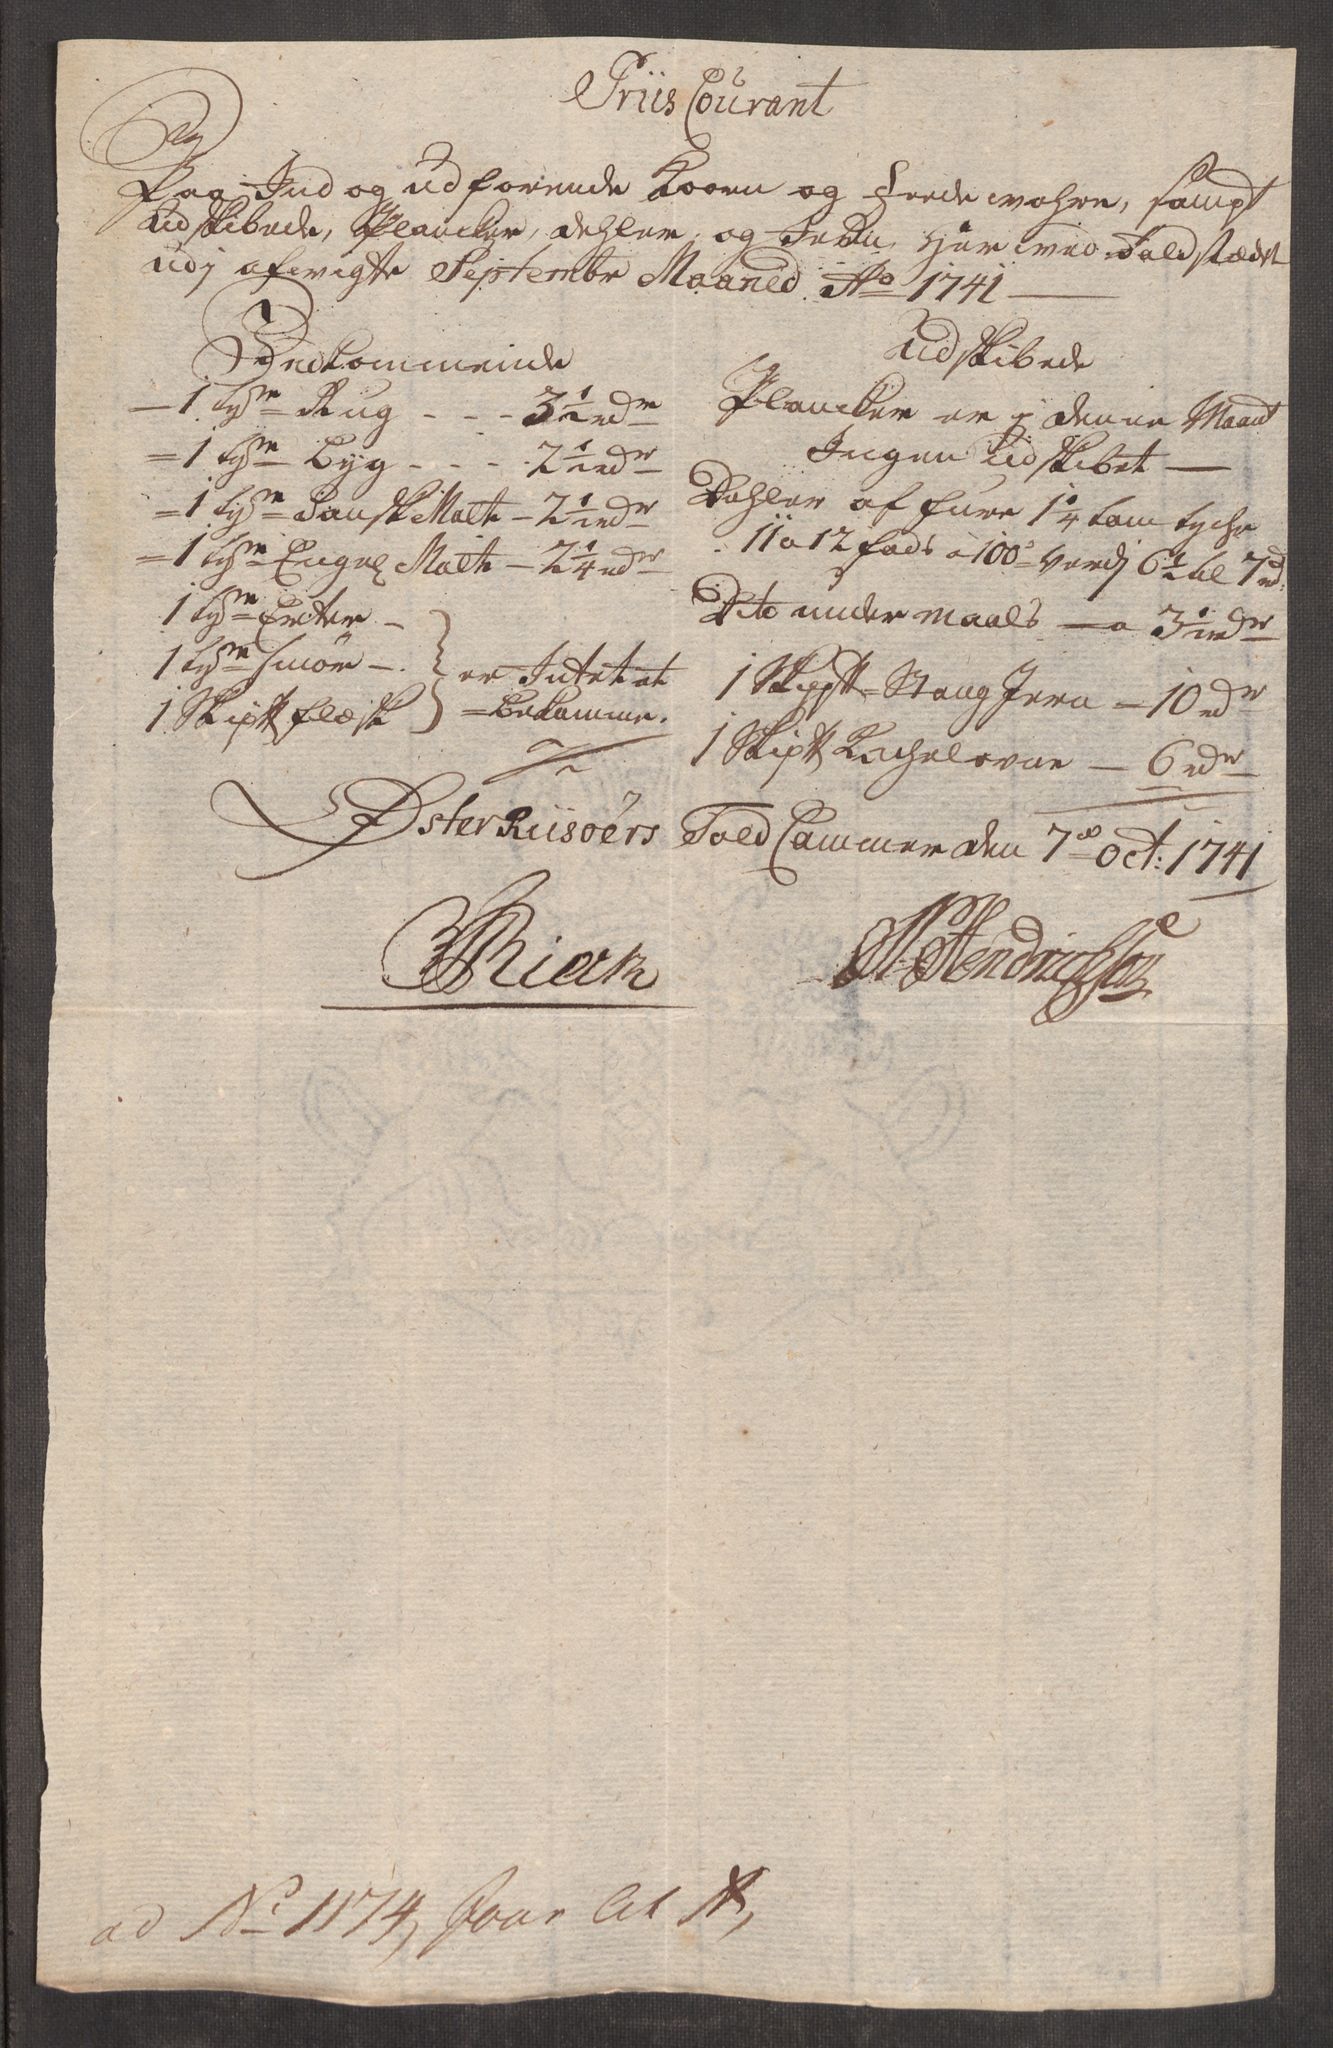 Priis Courant
Paa Ind og udförende Koorn og feede wahre, sampt
Udskibede, Plancker, dehler, og Jern, hær wed Toldstædet
udj afwigte Septembr Maaned Ao 1741
Indkommende
1 tøn Rug - - - 3 1/2 rdr
1 tøn byg - - - 2 1/2 rdr
1 tøn Dansk Malt - 2 1/2 rdr
1 tøn Engel Malt - 2 1/4 rdr
1 tøn Erter -
1 tøn smör -
1 Skip℔ flesk
er Intet at
bekomme.
Udskibede
Plancker er j denne Maant
Ingen Udskibet
Dehler af fure 1 1/4 tom tycke
11 a 12 fods a 100d verdj 6 1/2 til 7 rd.
Dito under maals - a 3 1/2 rdr
1 Skip℔ Stang Jern - 10 rdr
1 Skip℔ Kachelovne - 6 rdr
Øster Riisöers Told Cammer den 7de Oct: 1741
Hendrichssøn
ad No 1174, foar lit A,